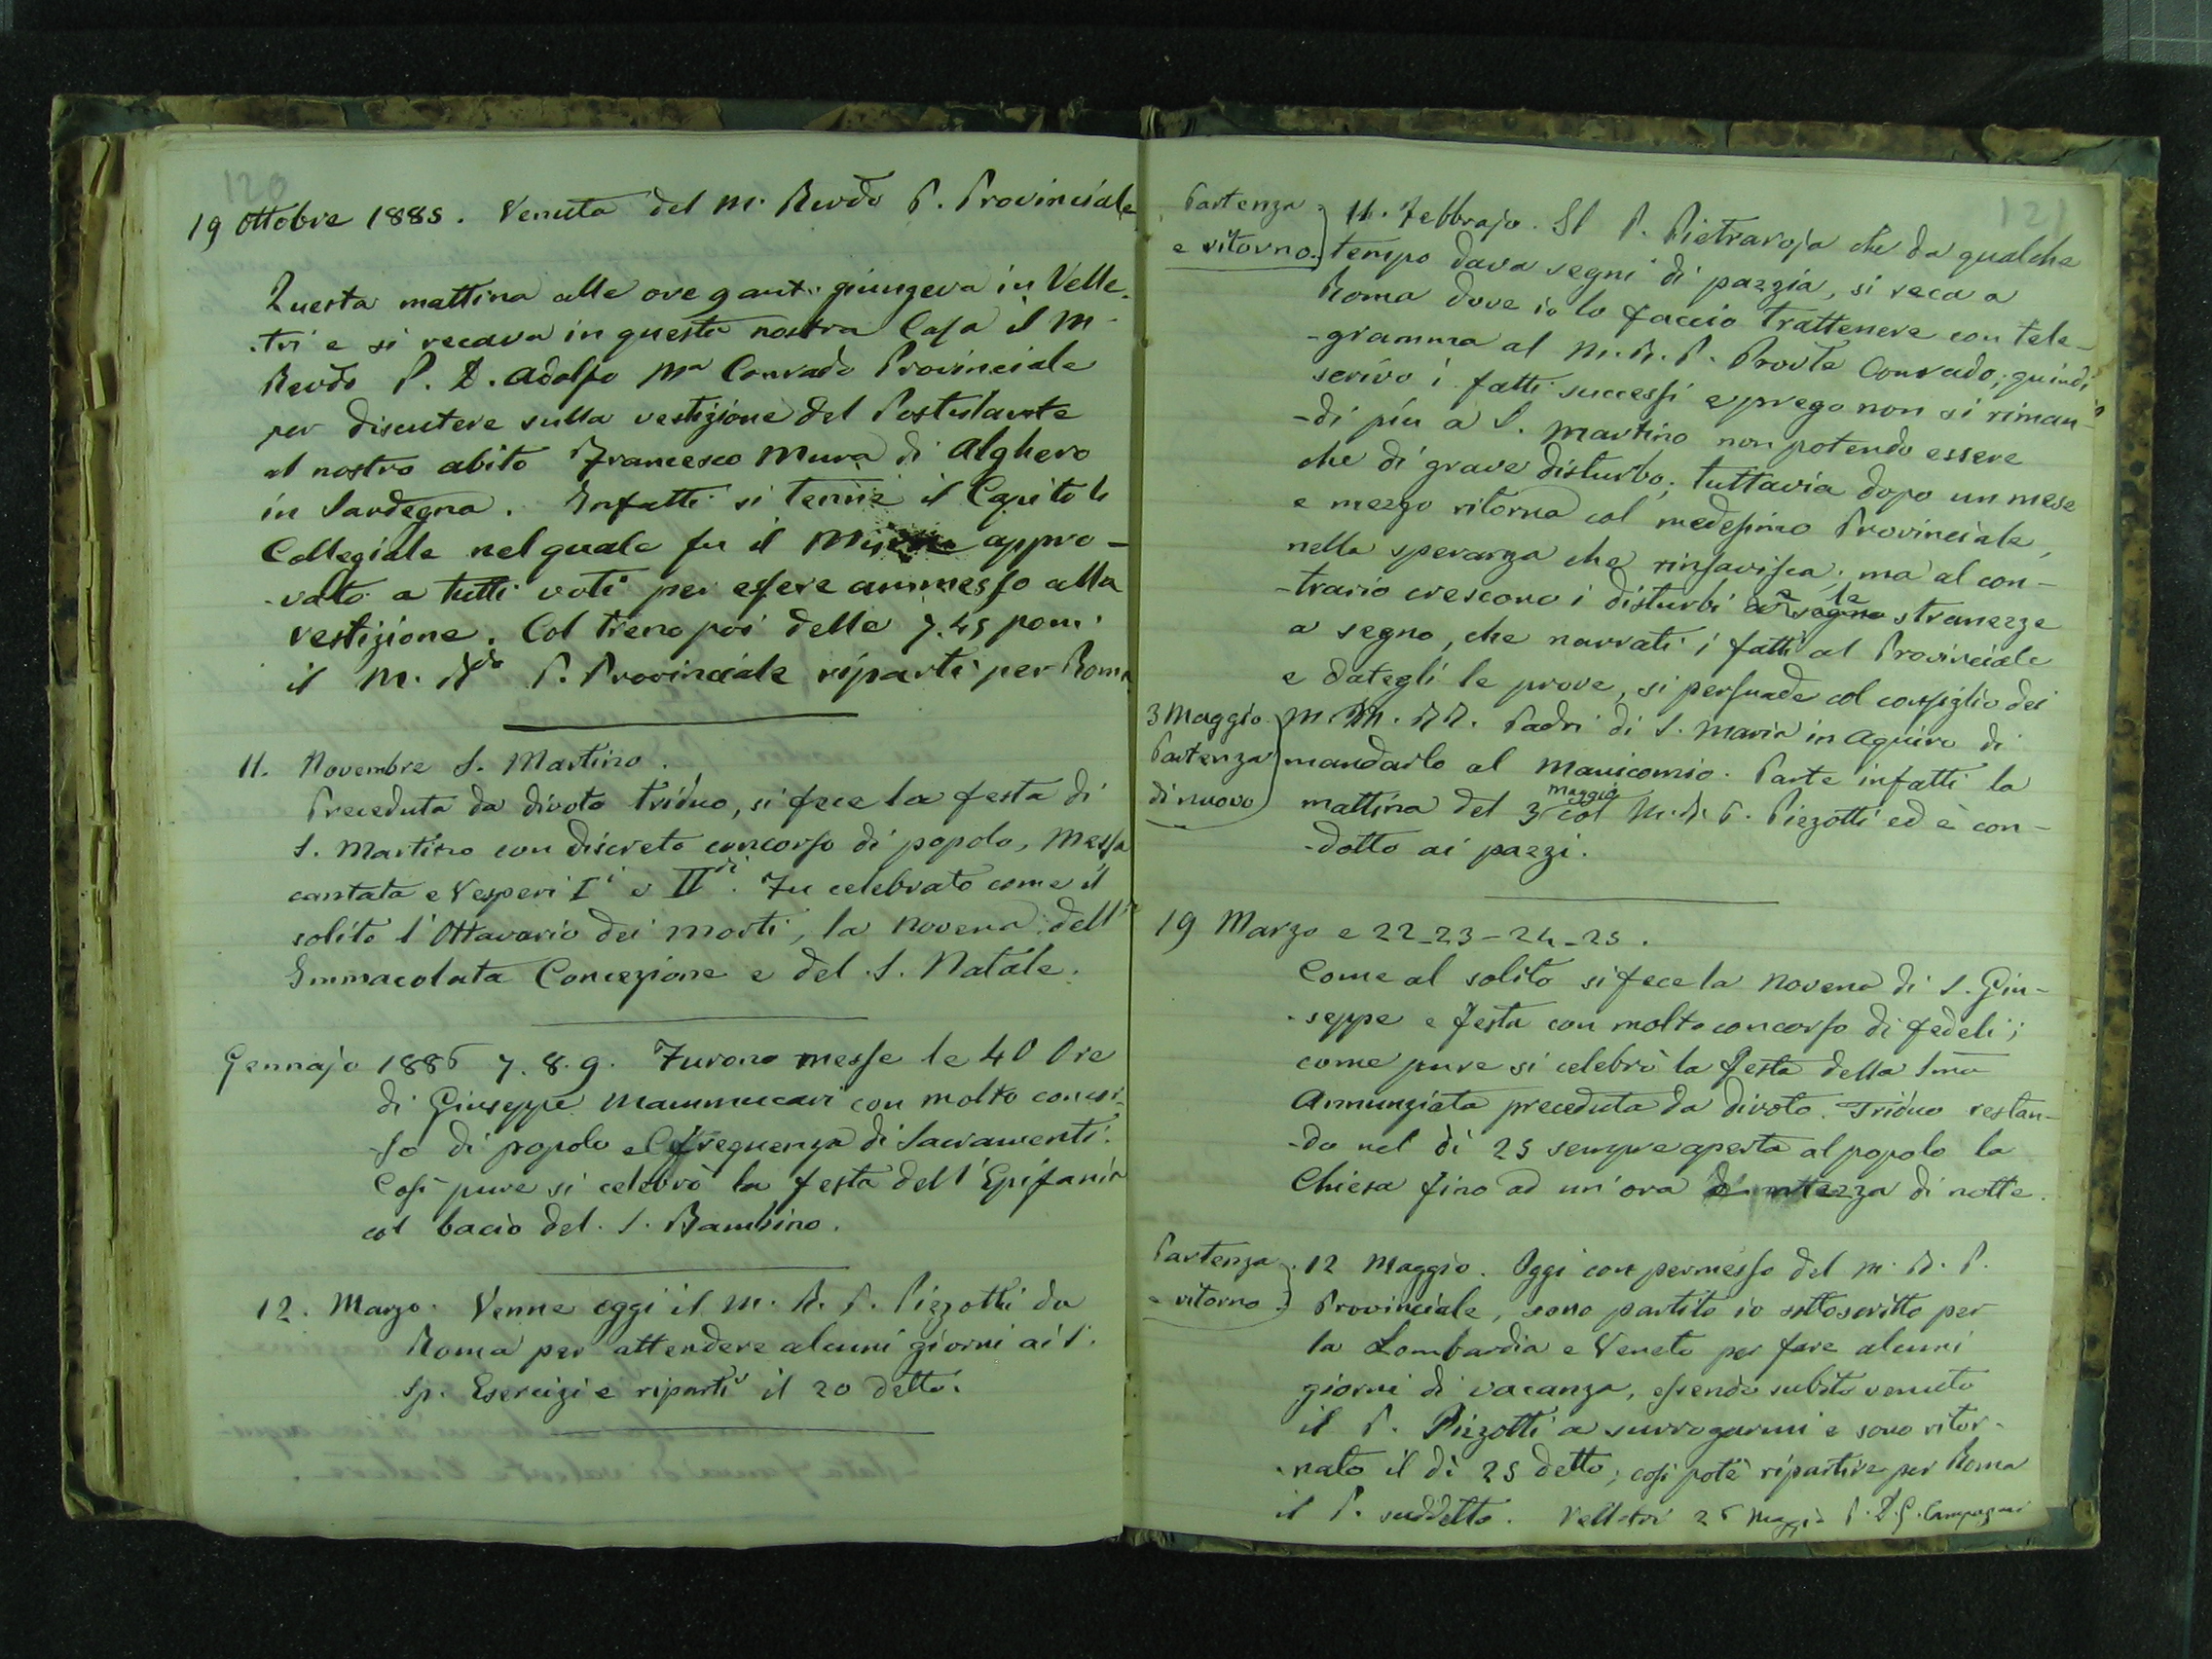 120
19 Ottobre 1885. Venuta del M. Revdo P. Provinciale
Questa mattina alle ore 9 ant. giungeva in Velle-
-tri e si recava in questa nostra Casa il M.
Revdo P. D. Adolfo Ma Conrado Provinciale
per discutere sulla vestizione del Postulante
al nostro abito Francesco Mura di Alghero
in Sardegna. Infatti si tenne il Capitolo
Collegiale nel quale fu il appro-
-vato a tutti voti per essere ammesso alla
vestizione. Col treno poi delle 7.45 pom.
il M. Rdo P. Provinciale ripartì per Roma
11. Novembre S. Martino.
Preceduta da divoto triduo, si fece la festa di
S. Martino con discreto concorso di popolo, Messa
cantata e Vesperi Ii e IIdi. Fu celebrato come il
solito l'Ottavario dei morti, la Novena dell'
Immacolata Concezione e del S. Natale.
Gennajo 1886 7. 8. 9. Furono messe le 40 Ore
di Giuseppe Mammucari con molto concor-
-so di popolo e frequenza di Sacramenti.
Così pure si celebrò la festa dell'Epifania
col bacio del S. Bambino.
12. Marzo. Venne oggi il M. R. P. Pizzotti da
Roma per attendere alcuni giorni ai S.
Sp. Esercizi e ripartì il 20 detto.
121
Partenza
e ritorno.
11. Febbrajo. Il P. Pietraroja che da qualche
tempo dava segni di pazzia, si reca a
Roma dove io lo faccio trattenere con tele-
-gramma al M. R. P. Provle Conrado; quindi
scrivo i fatti successi e prego non si riman-
-di più a S. Martino non potendo essere
che di grave disturbo; tuttavia dopo un mese
e mezzo ritorna col medesimo Provinciale,
nella speranza che rinsavisca; ma al con-
-trario crescono i disturbi e le a segno stranezze
a segno, che narrati i fatti al Provinciale
e dategli le prove, si persuade col consiglio dei
3 Maggio
Partenza
di nuovo
M. M. R R. Padri di S. Maria in Aquiro di
mandarlo al Manicomio. Parte infatti la
mattina del 3 maggio col M. R. P. Pizzotti ed è con-
-dotto ai pazzi.
19 Marzo e 22-23-24-25.
Come al solito si fece la Novena di S. Giu-
-seppe e festa con molto concorso di fedeli;
come pure si celebrò la festa della Sma
Annunziata preceduta da divoto Triduo restan-
-do nel dì 25 sempre aperta al popolo la
Chiesa fino ad un'ora e mezza di notte.
Partenza
e ritorno.
12 Maggio. Oggi con permesso del M. R. P.
Provinciale, sono partito io sottoscritto per
la Lombardia e Veneto per fare alcuni
giorni di vacanza, essendo subito venuto
il P. Pizzotti a surrogarmi e sono ritor-
-nato il dì 25 detto; così potè ripartire per Roma
il P. suddetto. Velletri 26 Maggio P. D. G. Campagner